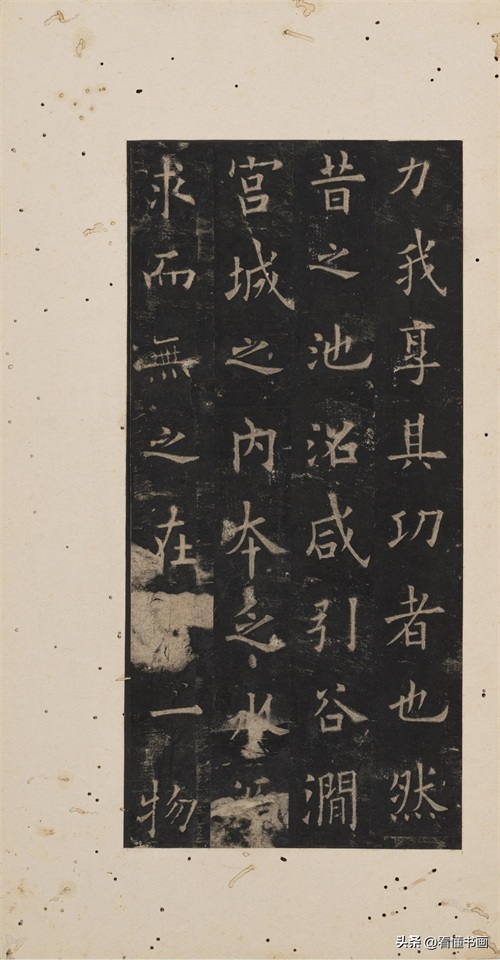 力我享其功者也然
昔之池沼咸引谷澗
宫城之内本乏水
求而無之在一物
头条 @看懂书画